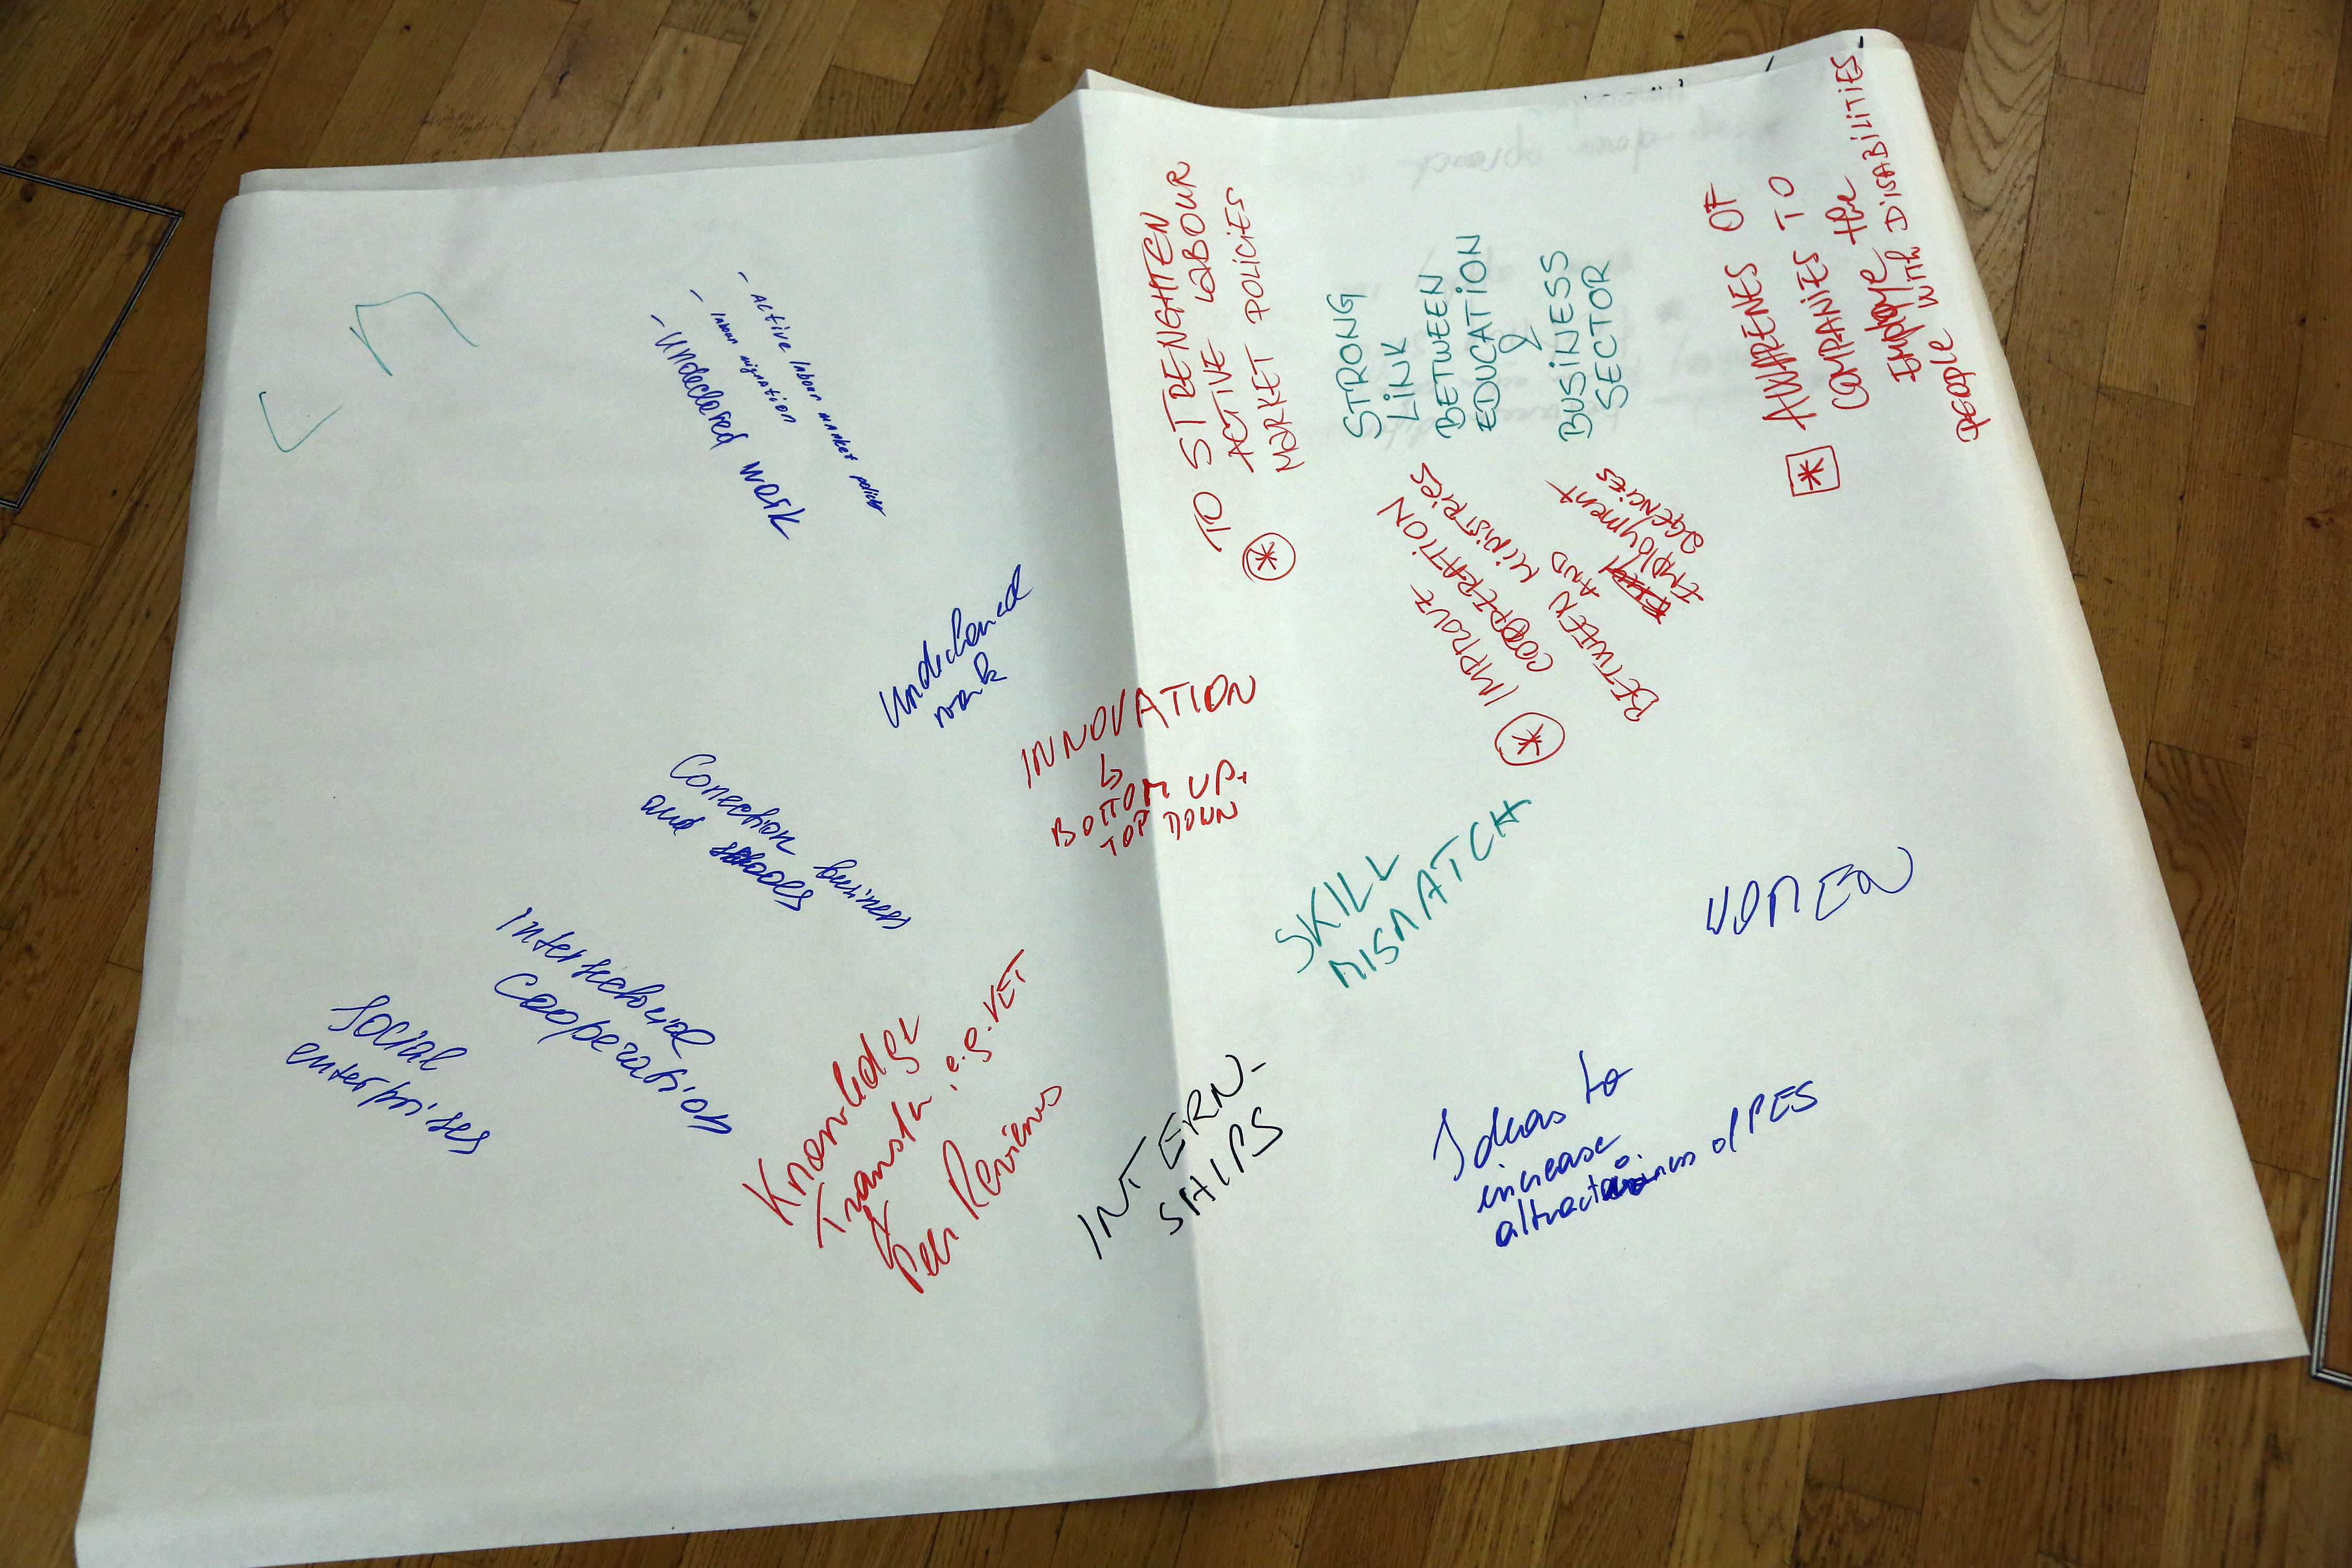 - Active labour market policies
- labour migration
- Undeclared work
Undeclared
work
Conection business
and schools
Intersectorial
Cooperation
Social
enterprises
TO STRENGHTEN
ACTIVE LABOUR
MARKET POLICIES
STRONG
LINK
BETWEEN
EDUCATION
&
BUSINESS
SECTOR
AWARENES OF
COMPANIES TO
Employe the
people WITH DISABILITIES
IMPROVE
COOPERATION
BETWEEN MINISTRIES
AND
Employment
agencies
INNOVATION
↳
BOTTOM UP+
TOP DOWN
SKILL
MISMATCH
WOMEN
Knowledge
Transfer, e.g. VET
&
Peer Reviews
INTERN-
SHIPS
Ideas to
increase
attractiveness of PES